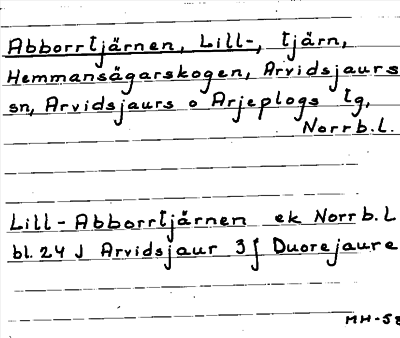 Abborrtjärnen, Lill-, tjärn,
Hemmansägarskogen, Arvidsjaurs
sn, Arvidsjaurs o Arjeplogs tg,
Norrb.l.
Lill-Abborrtjärnen ek Norrb.L
bl. 24 J Arvidsjaur 3f Duorejaure
MH-58